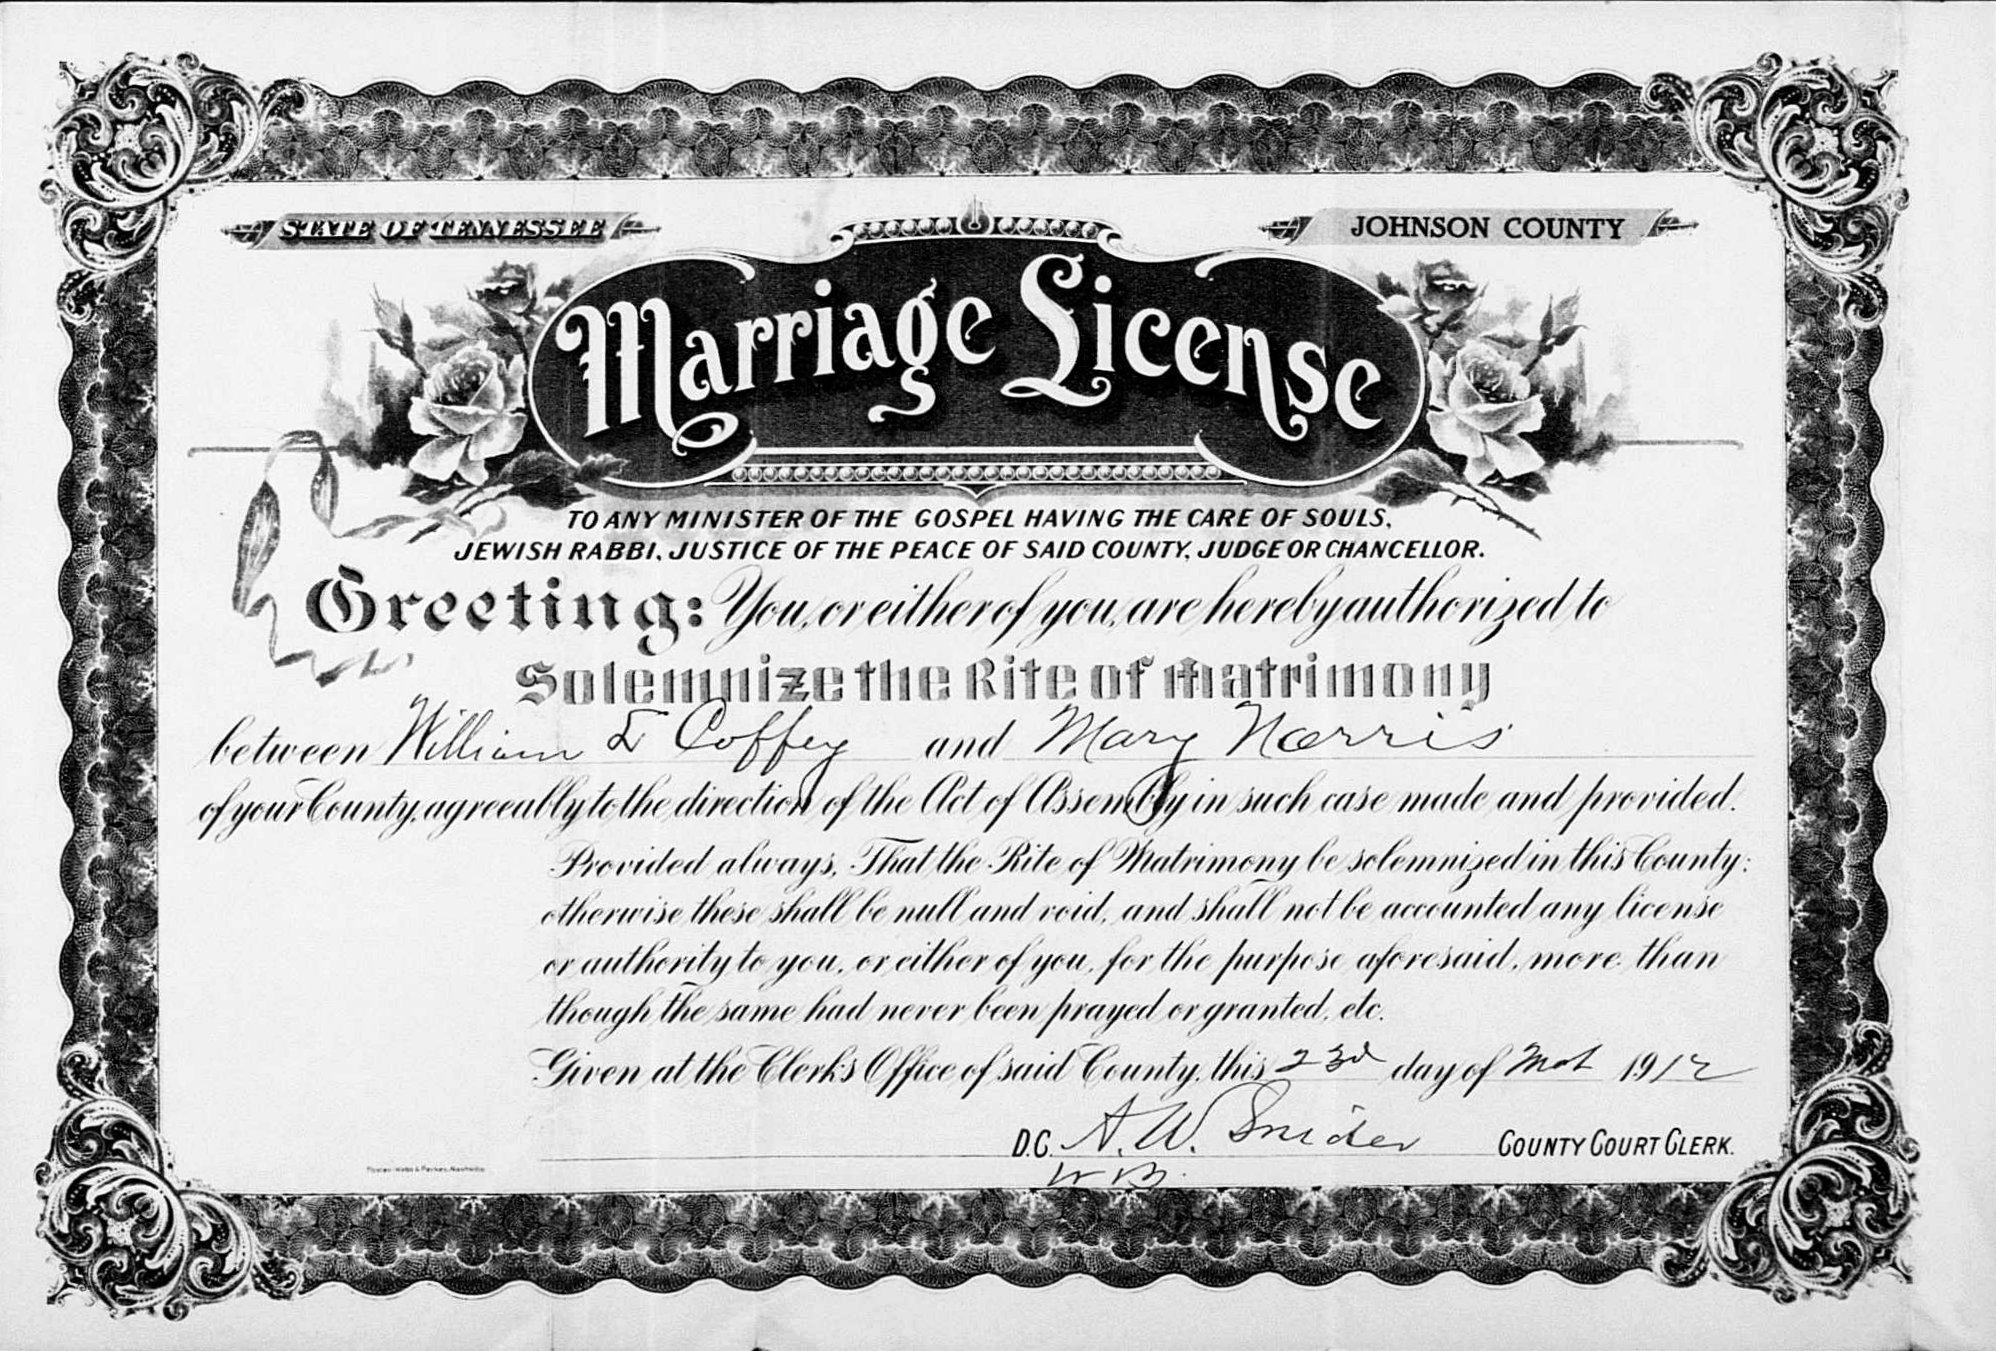 STATE OF TENNESSEE
JOHNSON COUNTY
Marriage License
TO ANY MINISTER OF THE GOSPEL HAVING THE CARE OF SOULS,
JEWISH RABBI, JUSTICE OF THE PEACE OF SAID COUNTY, JUDGE OR CHANCELLOR.
Greeting: You, or either of you, are hereby authorized to
Solemnize the Rite of Matrimony
between William E Coffey and Mary Norris
of your County, agreeably to the direction of the Act of Assembly in such case made and provided.
Provided always, That the Rite of Matrimony be solemnized in this County;
otherwise these shall be null and void, and shall not be accounted any license
or authority to you, or either of you, for the purpose aforesaid, more than
though the same had never been prayed or granted, etc.
Given at the Clerk's Office of said County, this 23rd day of 1912
D.C. A. W. Snider COUNTY COURT CLERK.